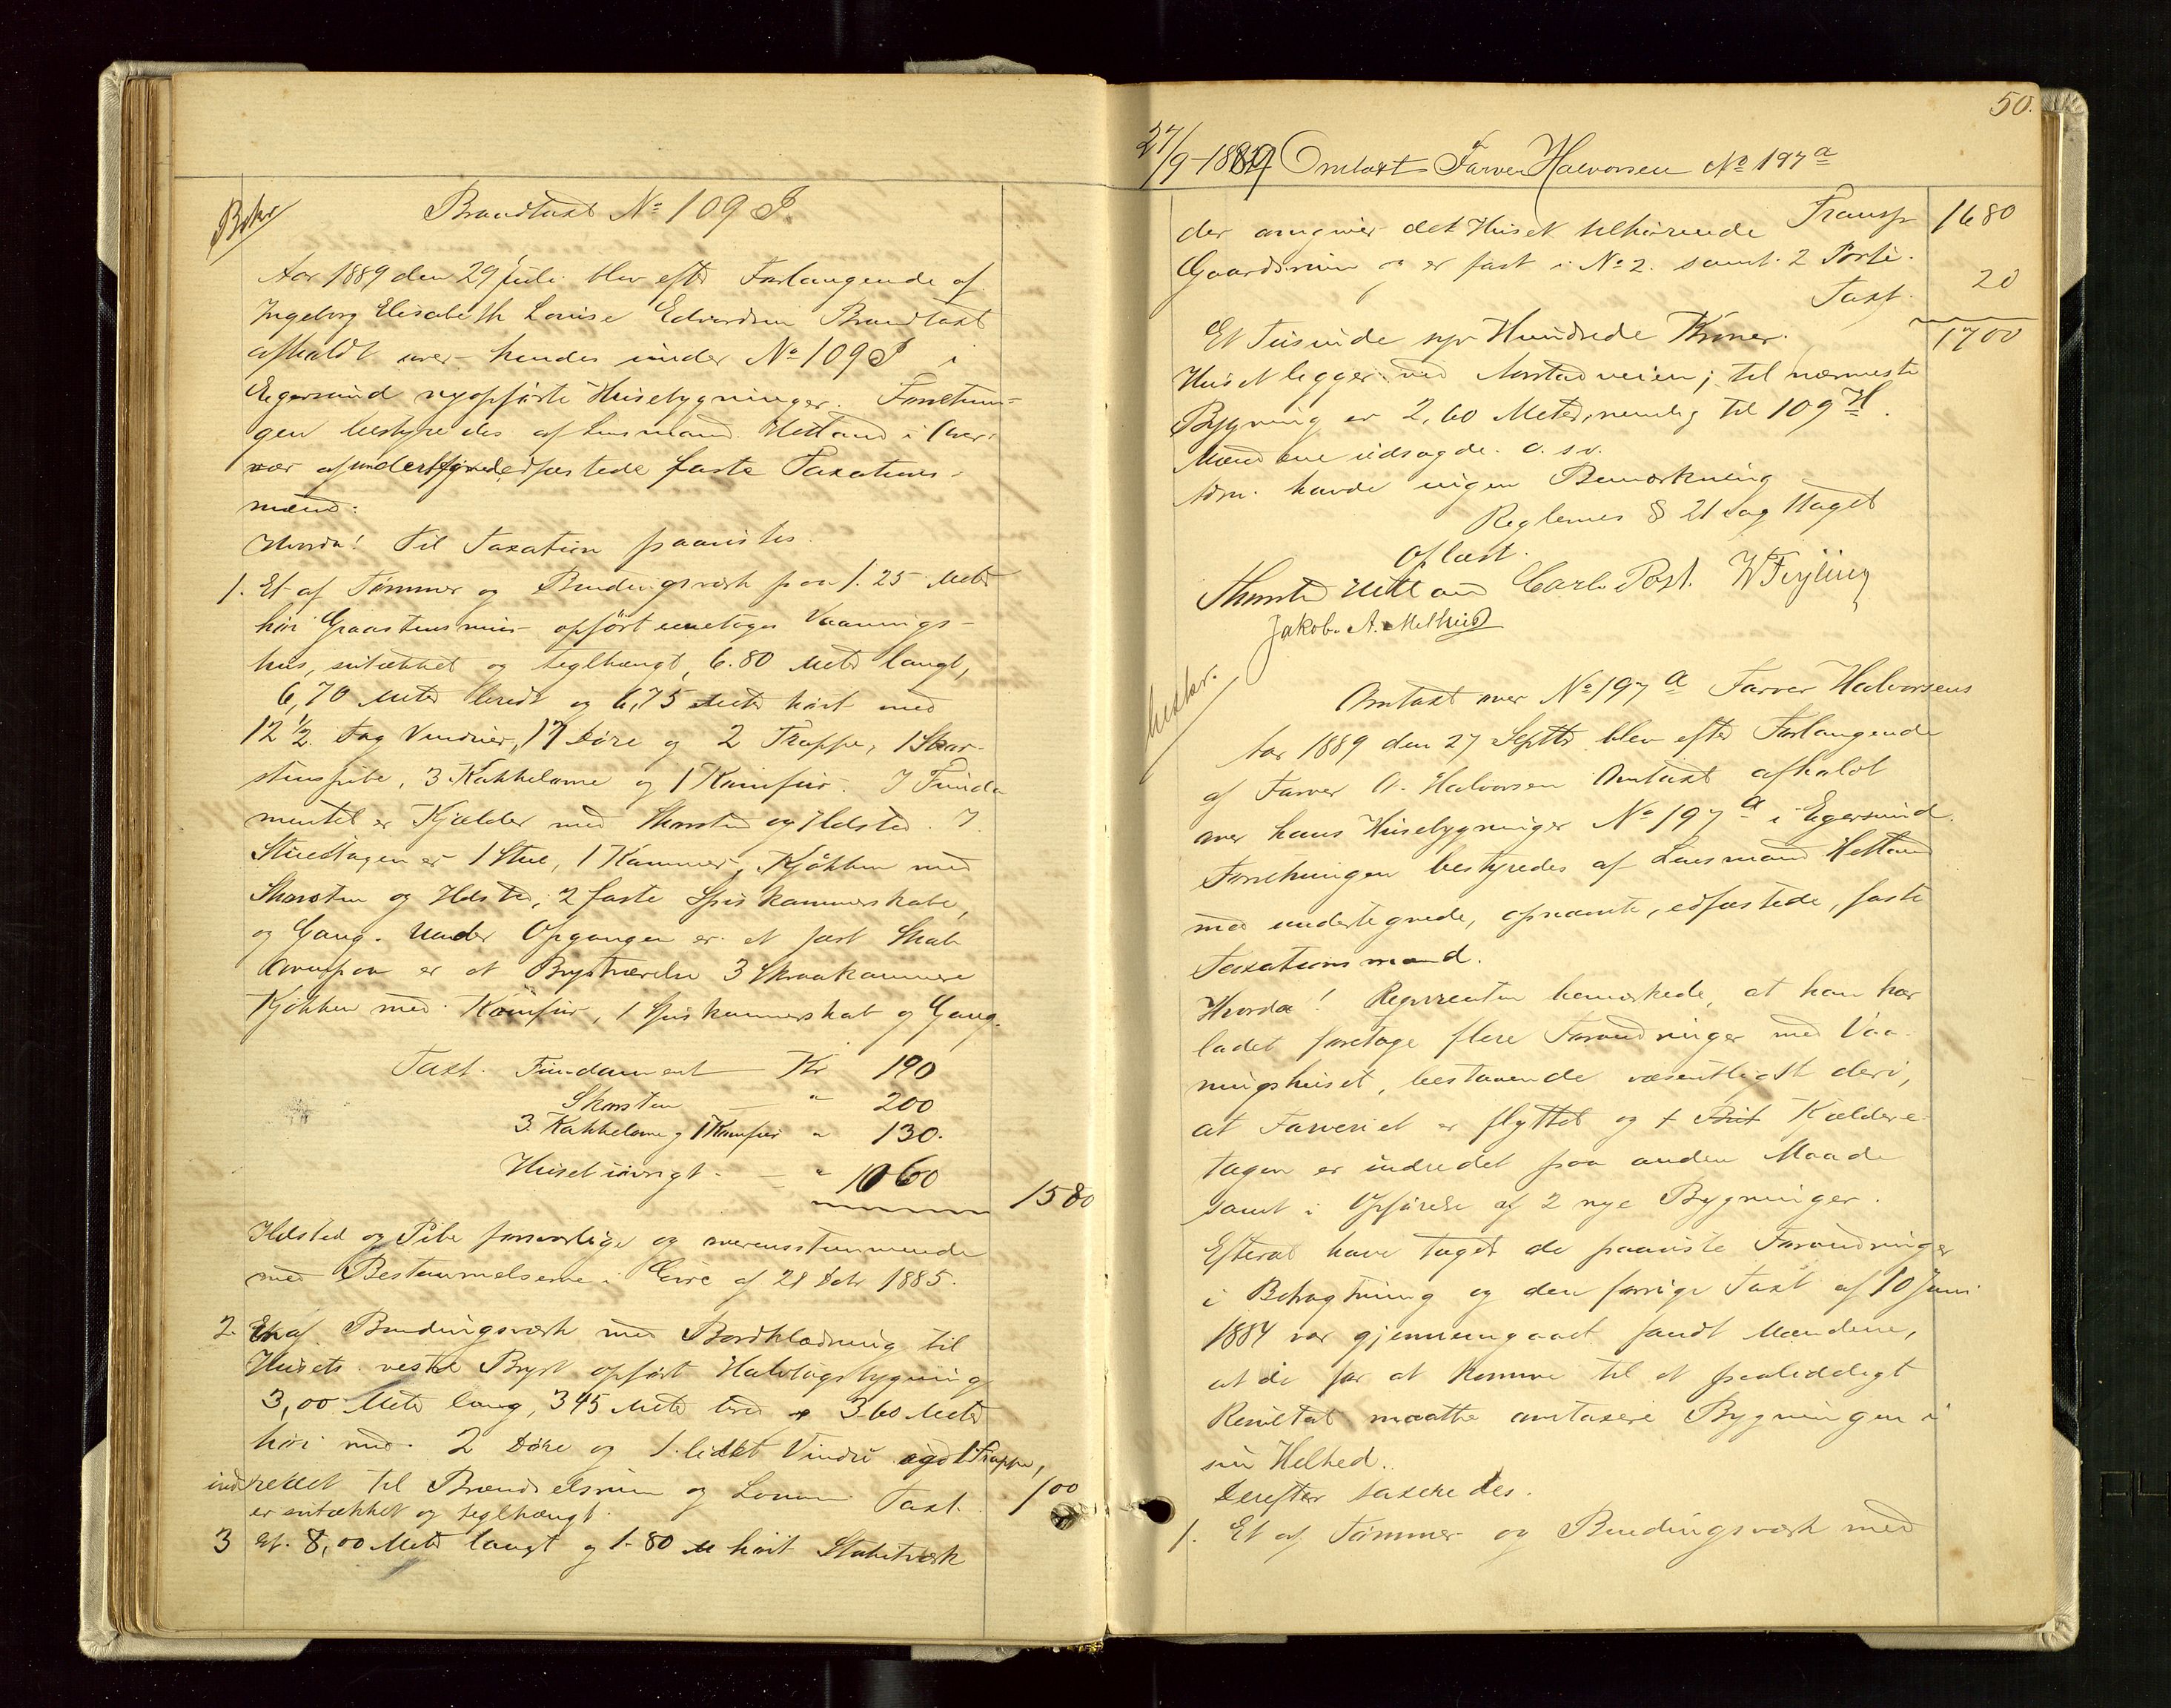 Brandtaxt No 109 J.
Aar 1889 den 29 Juli blev efter Forlangende af
Ingeborg Elisabeth Louise Edvardsen Brandtaxt
afholdt over hendes under No 109 J i
Egersund nyopførte Husebygninger. Forretnin-
gen bestyredes af Lensmand Hetland i Over-
vær af undertegnede, edfæstede faste Taxations-
mænd.
Hvorda! Til Taxation paavistes
1. Et af Tømmer og Bindingsværk paa 1.25 Meter
høi Graastensmur opført eenetages Vaanings-
hus, sutækket og teglhængt, 6.80 Meter langt,
6,70 Meter bredt og 6,75 Meter høit med
12 1/2 Fag Vinduer, 17 Døre og 2 Trapper, 1 Skor-
stenspibe, 3 Kakkelovne og 1 Komfur. I Funda-
mentet er Kjælder med Skorsten og Ildsted. I
Stueetagen er 1 Stue, 1 Kammer, Kjøkken med
Skorsten og Ildsted, 2 faste Spiskammerskabe,
og Gang. Under Opgangen er et fast Skab
Ovenpaa er et Brystværelse 3 Skraakammere
Kjøkken med Komfur, 1 Spiskammerskab og Gang.
Taxt. Fundament Kr 190
Skorsten " 200
3 Kakkelovne og 1 Komfur " 130.
Huset iøvrigt " 1060
1580
Ildsted og Pibe forsvarlige og overensstemmende
med Bestemmelserne i Circ af 21 Febr 1885.
2. En af Bindingsværk med Bordklædning til
Husets vestre Bryst opført Halvtagsbygning
3,00 Meter lang, 3 45 Meter bred og 3.60 Meter
høi med 2 Døre og 1 lidet Vindu og 1 Trappe,
indrettet til Brændselsrum og Taxt. 100
er sutækket og teglhængt.
3 Et 8,00 Meter langt og 1.80 M høit Stakitværk
50.
27/9-1889 Omtaxt Farver Halvorsen No 197 a
Transp 1680
der omgiver det Huset tilhørende
Gaardsrum og er fast i No 2. samt 2 Porte.
Taxt. 20
Et Tusinde syv Hundrede Kroner. 1700
Huset ligger ved Aarstadveien; til nærmeste
Bygning er 2,60 Meter, nemlig til 109 H.
Mændene udsagde. o. s. v.
Adm. havde ingen Bemærkning
Reglernes § 21 iagttaget
Oplæst.
Thorsten Hetland Carl Post. W Feyling
Jakob A. Melhus
Omtaxt over No 197 a Farver Halvorsens
Aar 1889 den 27 Septbr blev efter Forlangende
af Farver O. Halvorsen Omtaxt afholdt
over hans Husebygninger No 197 a i Egersund.
Forretningen bestyredes af Lensmand Hetland
med undertegnede, opnævnte, edfæstede, faste
Taxationsmænd.
Hvorda! Reqvirenten bemærkede, at han har
ladet foretage flere Forandringer med Vaa-
ningshuset, bestaaende væsentligst deri,
at Farveriet er flyttet og Kjælder-
etagen er indredet paa anden Maade
samt i Opførelse af 2 nye Bygninger.
Efterat have taget de paaviste Forandringer
i Betragtning og den forrige Taxt af 10 Juni
1884 var gjennemgaaet fandt Mændene,
at de for at komme til et paalideligt
Resultat maatte omtaxere Bygningen i
sin Helhed.
Derefter taxeredes.
1. Et af Tømmer og Bindingsværk med